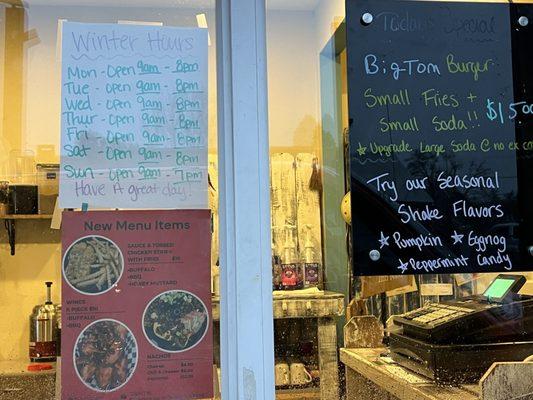 Winter Hours
Mon - Open 9am - 8pm
Tue - Open 9am - 8pm
Wed - Open 9am - 8pm
Thur - Open 9am - 8pm
Fri - Open 9am - 8pm
Sat - Open 9am - 8pm
Sun - Open 9am - 7pm
Have A great day!
New Menu Items
SAUCE & TOSSED
CHICKEN STRIP
WITH FRIES
-BUFFALO
-BBQ
-HONEY MUSTARD
WINGS
6 PIECE $10
-BUFFALO
-BBQ
NACHOS
Today's Special
Big Tom Burger
Small Fries +
Small Soda!!
$15
Upgrade Large Soda @ no ex
Try our Seasonal
Shake Flavors
Pumpkin Eggnog
Peppermint Candy